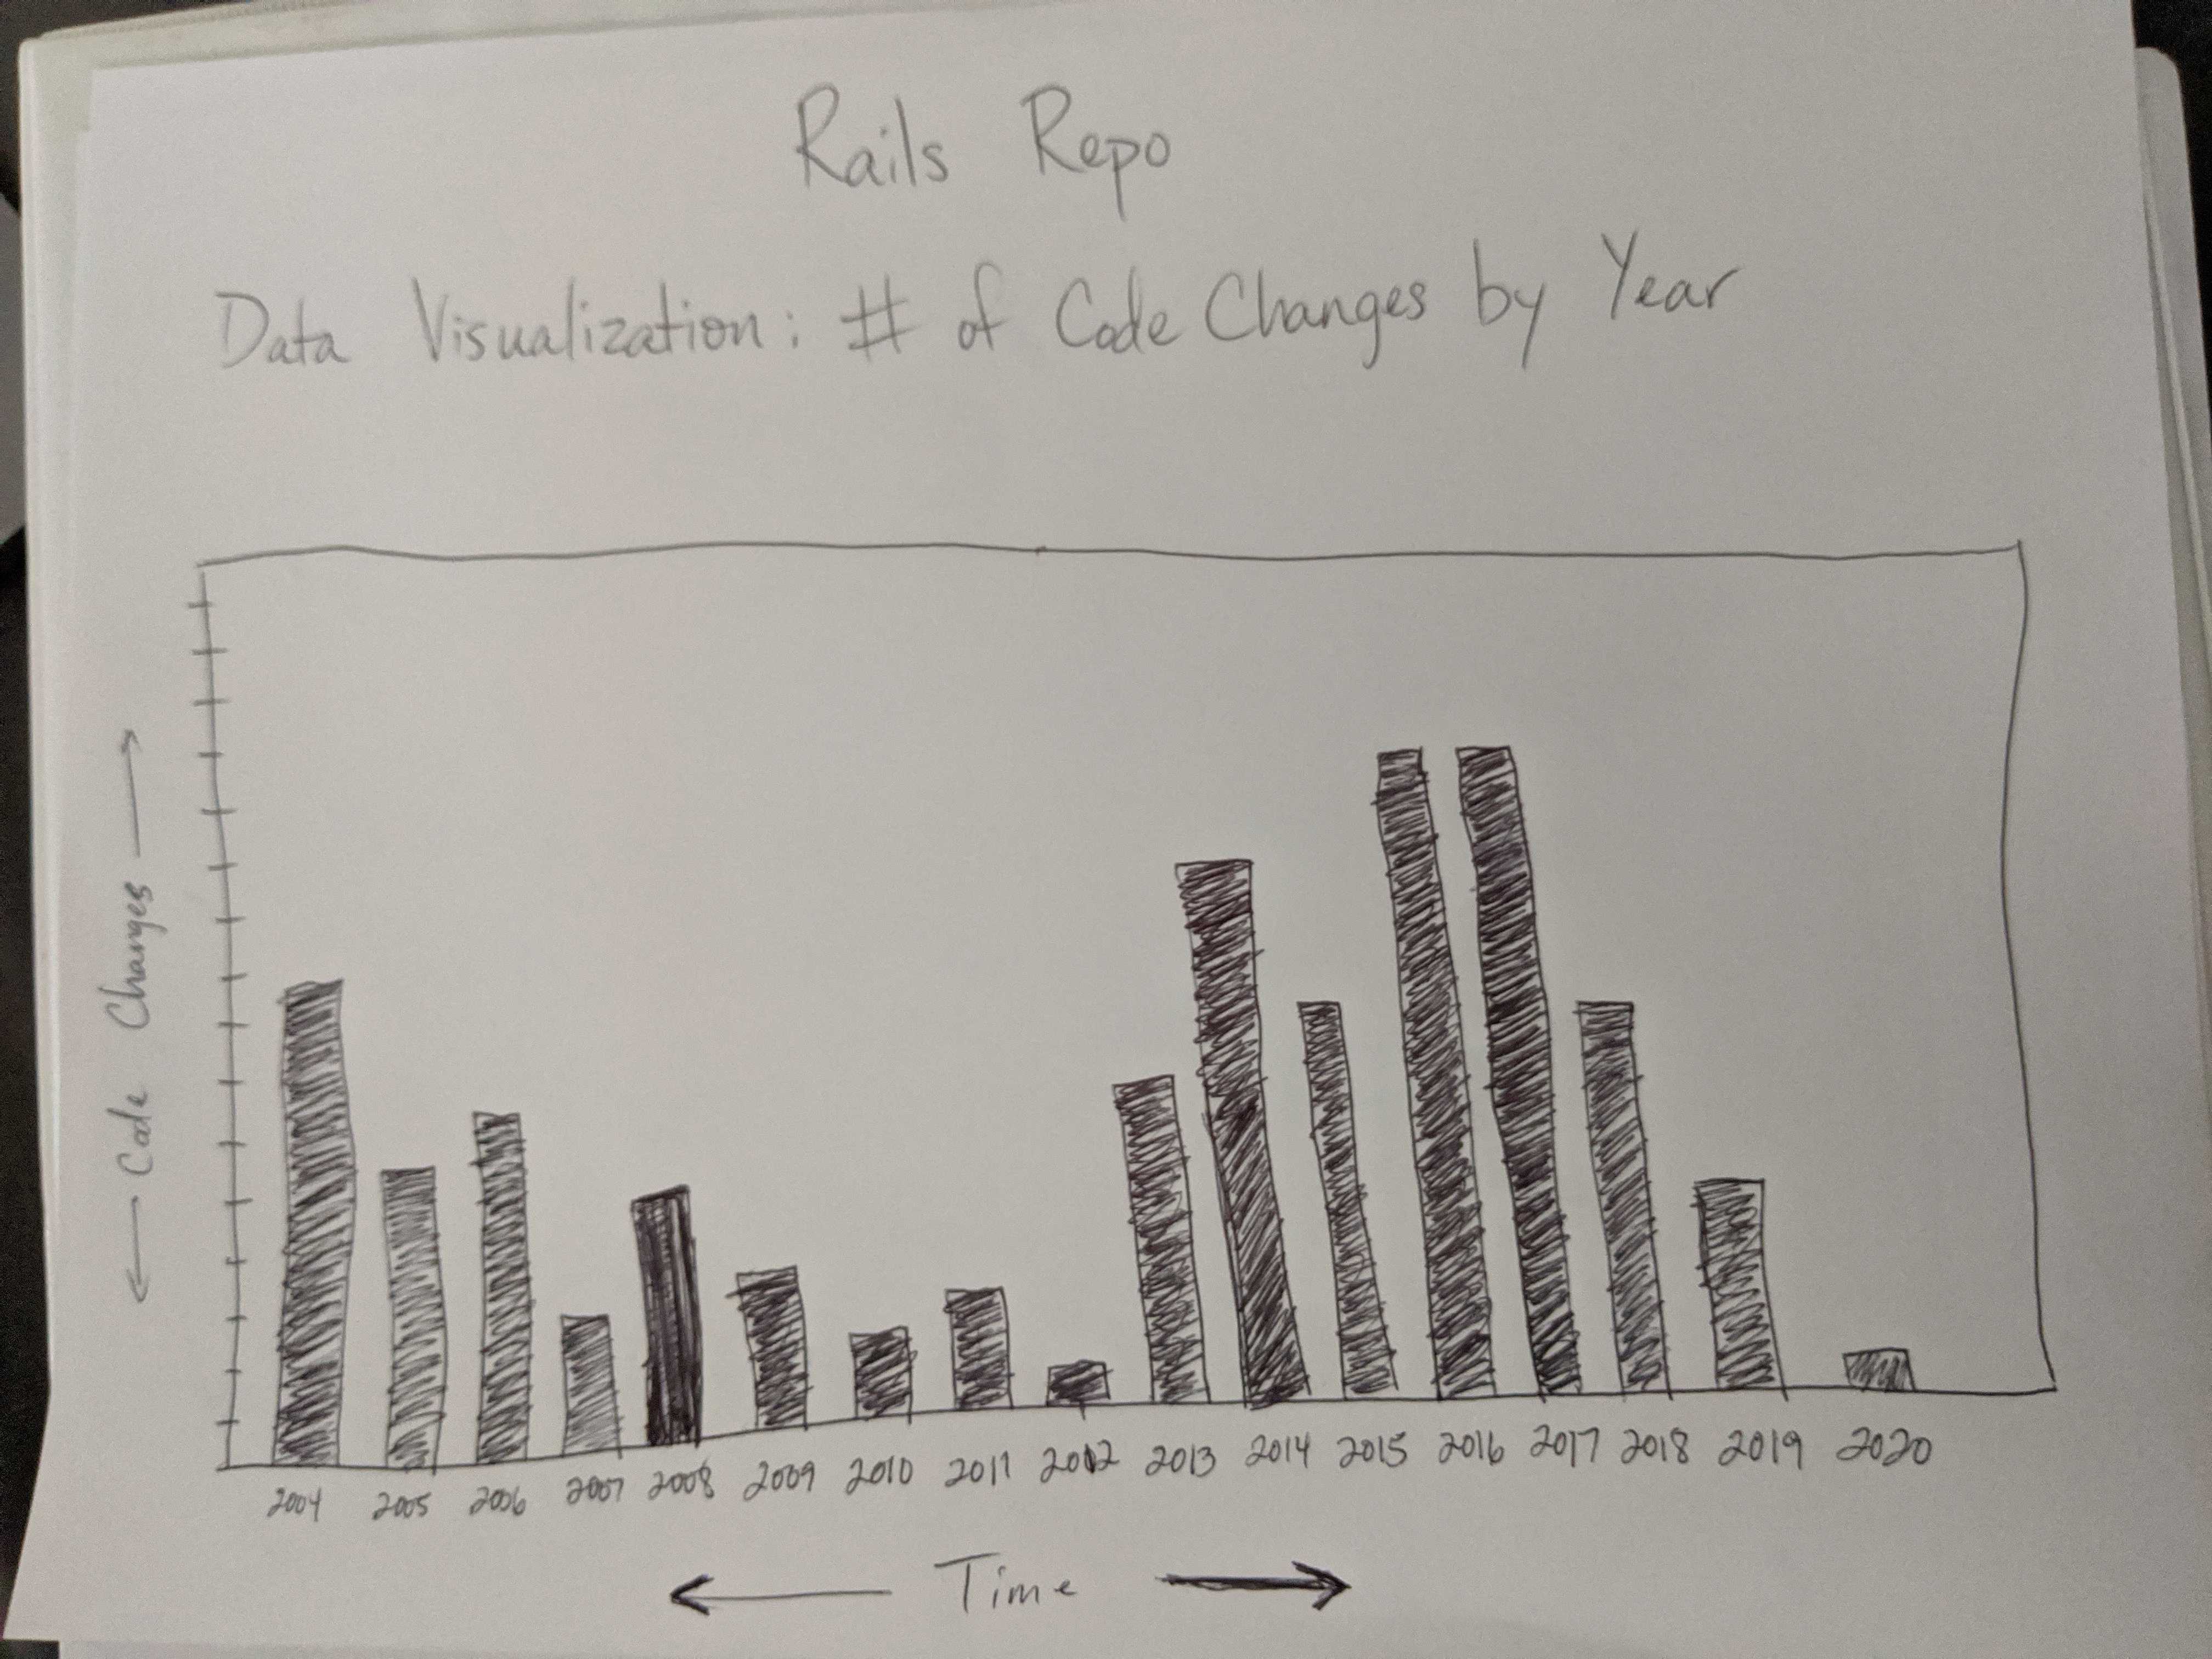 Rails Repo
Data Visualization: # of Code Changes by Year
← Code Changes →
2004 2005 2006 2007 2008 2009 2010 2011 2012 2013 2014 2015 2016 2017 2018 2019 2020
← Time →